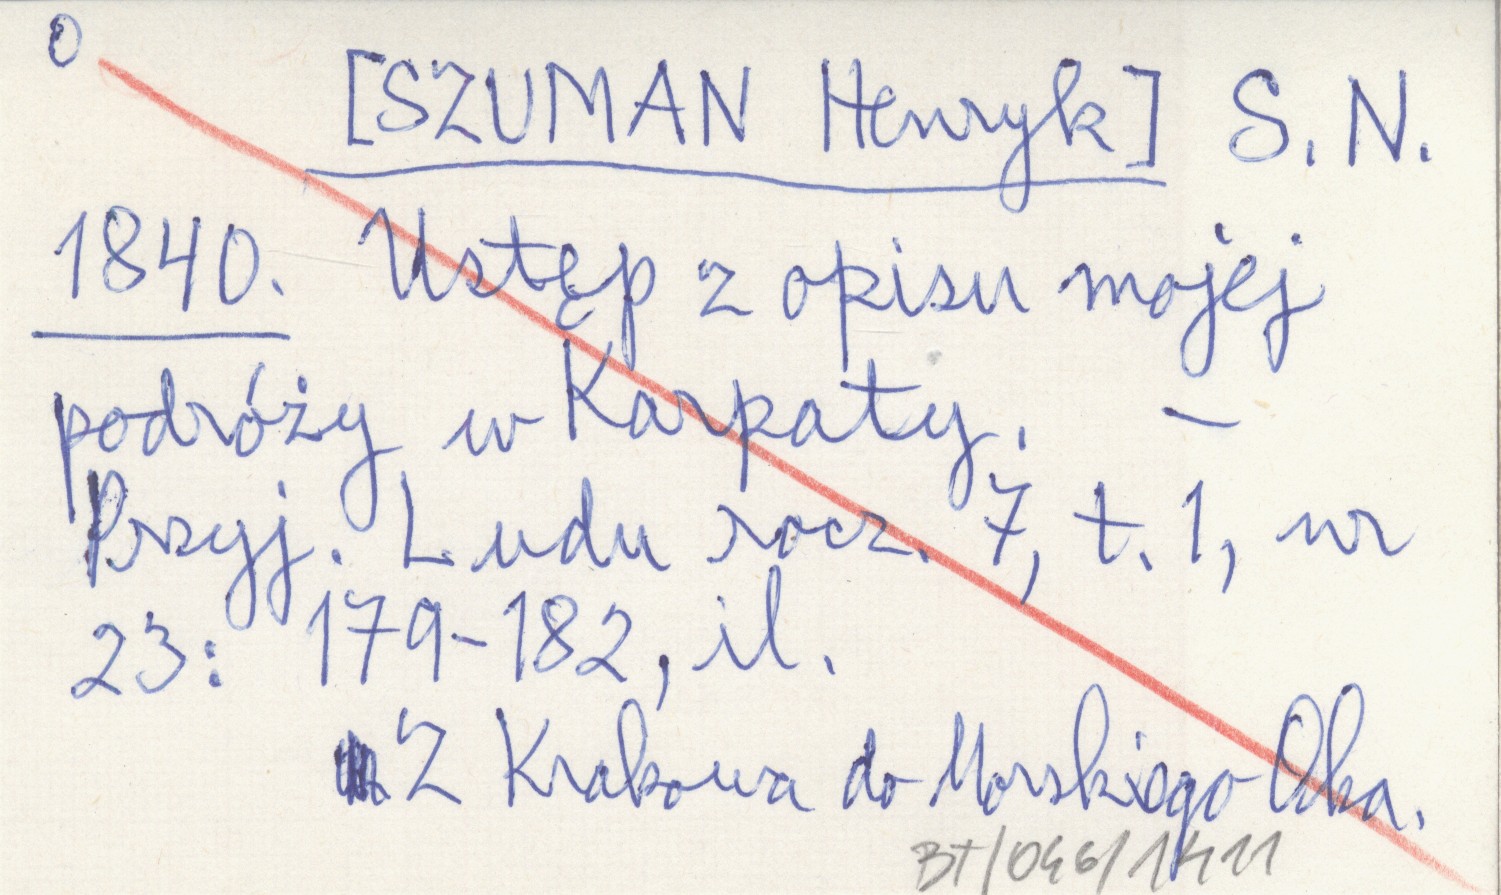 0
[SZUMAN Henryk] S. N.
1840. Ustęp z opisu mojej
podróży w Karpaty. –
Przyj. Ludu rocz. 7, t. 1, nr
23: 179-182, il.
Z Krakowa do Morskiego Oka.
BT/046/1411